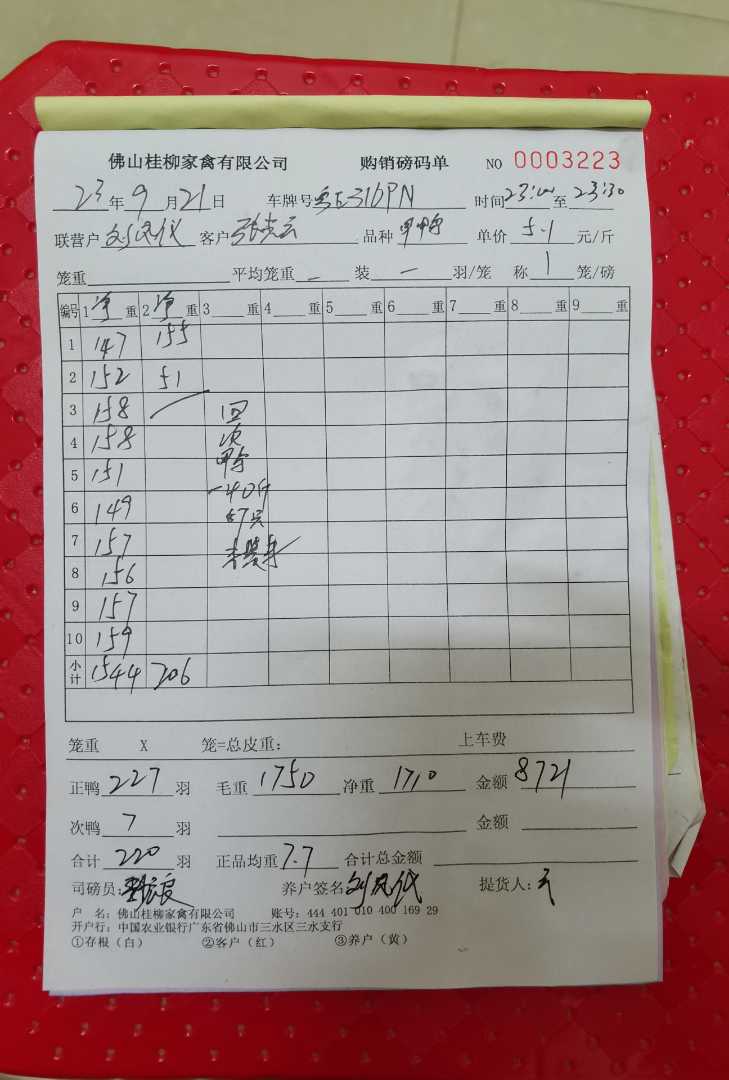 佛山桂柳家禽有限公司 购销磅码单 NO 0003223
23年9月21日 车牌号粤E310PN 时间23:00至23:30
联营户刘凤仪 客户 品种 单价5.1元/斤
笼重 平均笼重— 装—羽/笼 称1笼/磅
编号 1净重 2净重 3重 4重 5重 6重 7重 8重 9重
1 147 155
2 152 51
3 158
4 158
5 151
6 149
7 157
8 156
9 157
10 159
小计 1544 206
回
次
鸭
-40斤
67只
笼重 X 笼=总皮重: 上车费
正鸭227羽 毛重1750 净重1710 金额8721
次鸭7羽 金额
合计220羽 正品均重7.7 合计总金额
司磅员: 养户签名刘凤仪 提货人:
户 名: 佛山桂柳家禽有限公司 账号: 444 401 010 400 169 29
开户行: 中国农业银行广东省佛山市三水区三水支行
①存根(白) ②客户(红) ③养户(黄)